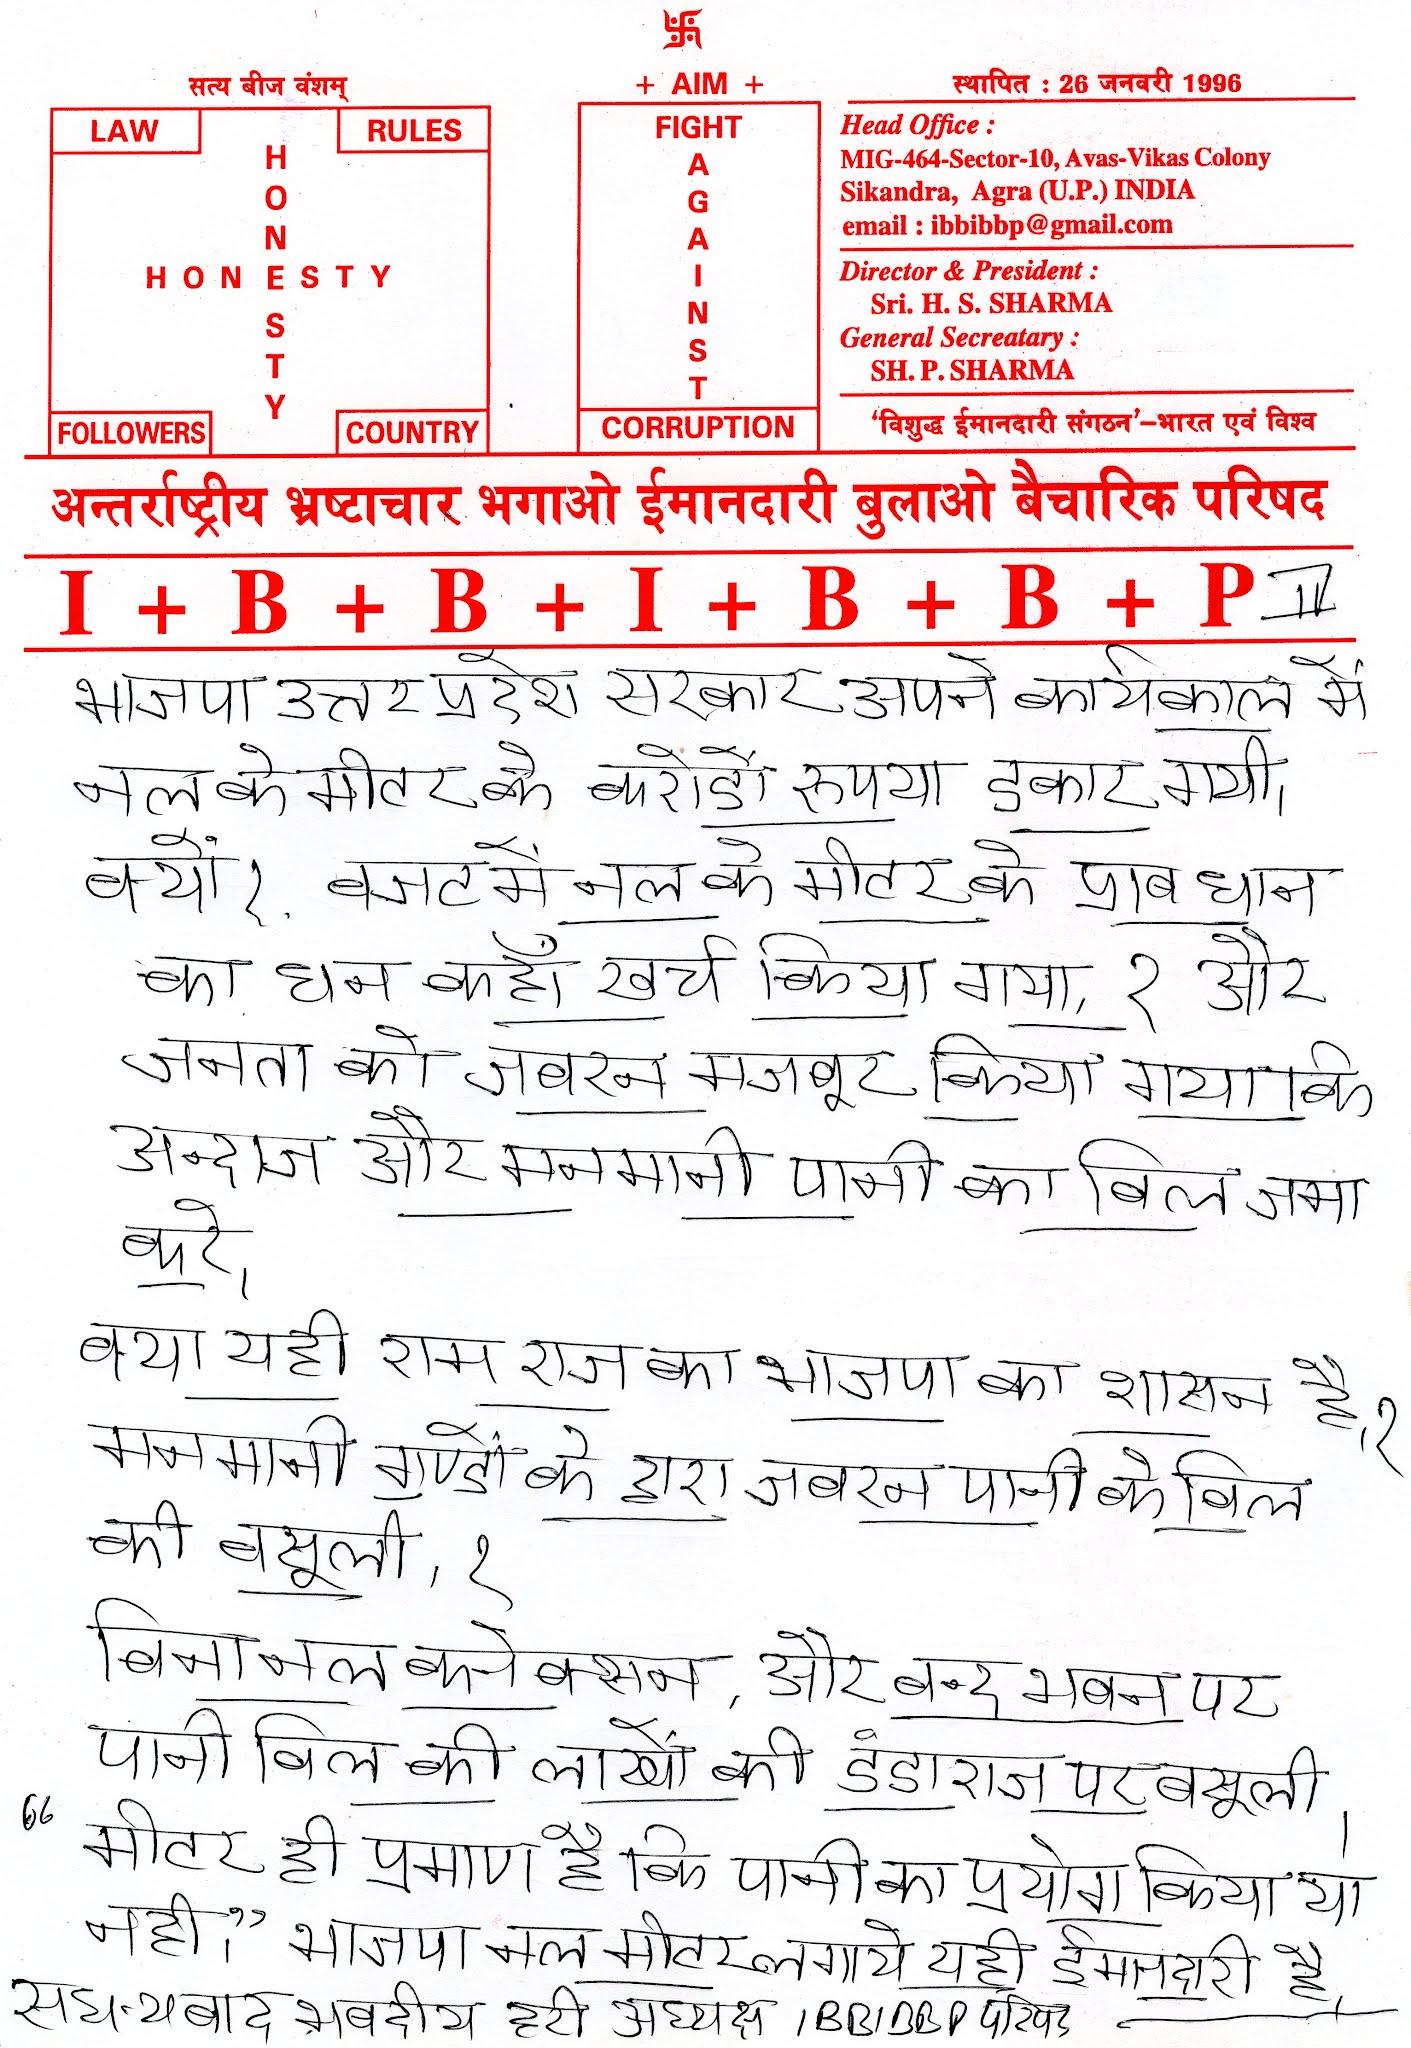 卐
सत्य बीज वंशम्
LAW
RULES
HONESTY
HONESTY
FOLLOWERS
COUNTRY
+ AIM +
FIGHT
AGAINST
CORRUPTION
स्थापित : 26 जनवरी 1996
Head Office :
MIG-464-Sector-10, Avas-Vikas Colony
Sikandra, Agra (U.P.) INDIA
email : ibbibbp@gmail.com
Director & President :
Sri. H. S. SHARMA
General Secreatary :
SH. P. SHARMA
‘विशुद्ध ईमानदारी संगठन’–भारत एवं विश्व
अन्तर्राष्ट्रीय भ्रष्टाचार भगाओ ईमानदारी बुलाओ बैचारिक परिषद
I + B + B + I + B + B + P II
भाजपा उत्तर प्रदेश सरकार अपने कार्यकाल में
नल के मीटर के करोडों रूपया डकार गयी।
क्यों?. बजट में नल के मीटर के प्राबधान
का धन कहाँ खर्च किया गया,? और
जनता को जबरन मजबूर किया गया कि
अन्दाज और मनमानी पानी का बिल जमा
करे,
क्या यही राम राज का भाजपा का शासन है,?
मनमानी गुण्डों के द्वारा जबरन पानी के बिल
की बसूली,?
बिना नल कनेक्सन, और बन्द भबन पर
पानी बिल की लाखों की डंडा राज पर बसूली,
“ मीटर ही प्रमाण है कि पानी का प्रयोग किया या
नही।” भाजपा नल मीटर लगाये यही ईमानदारी है,
सधन्यबाद भवदीय हरी अध्यक्ष IBBIBBP परिषद